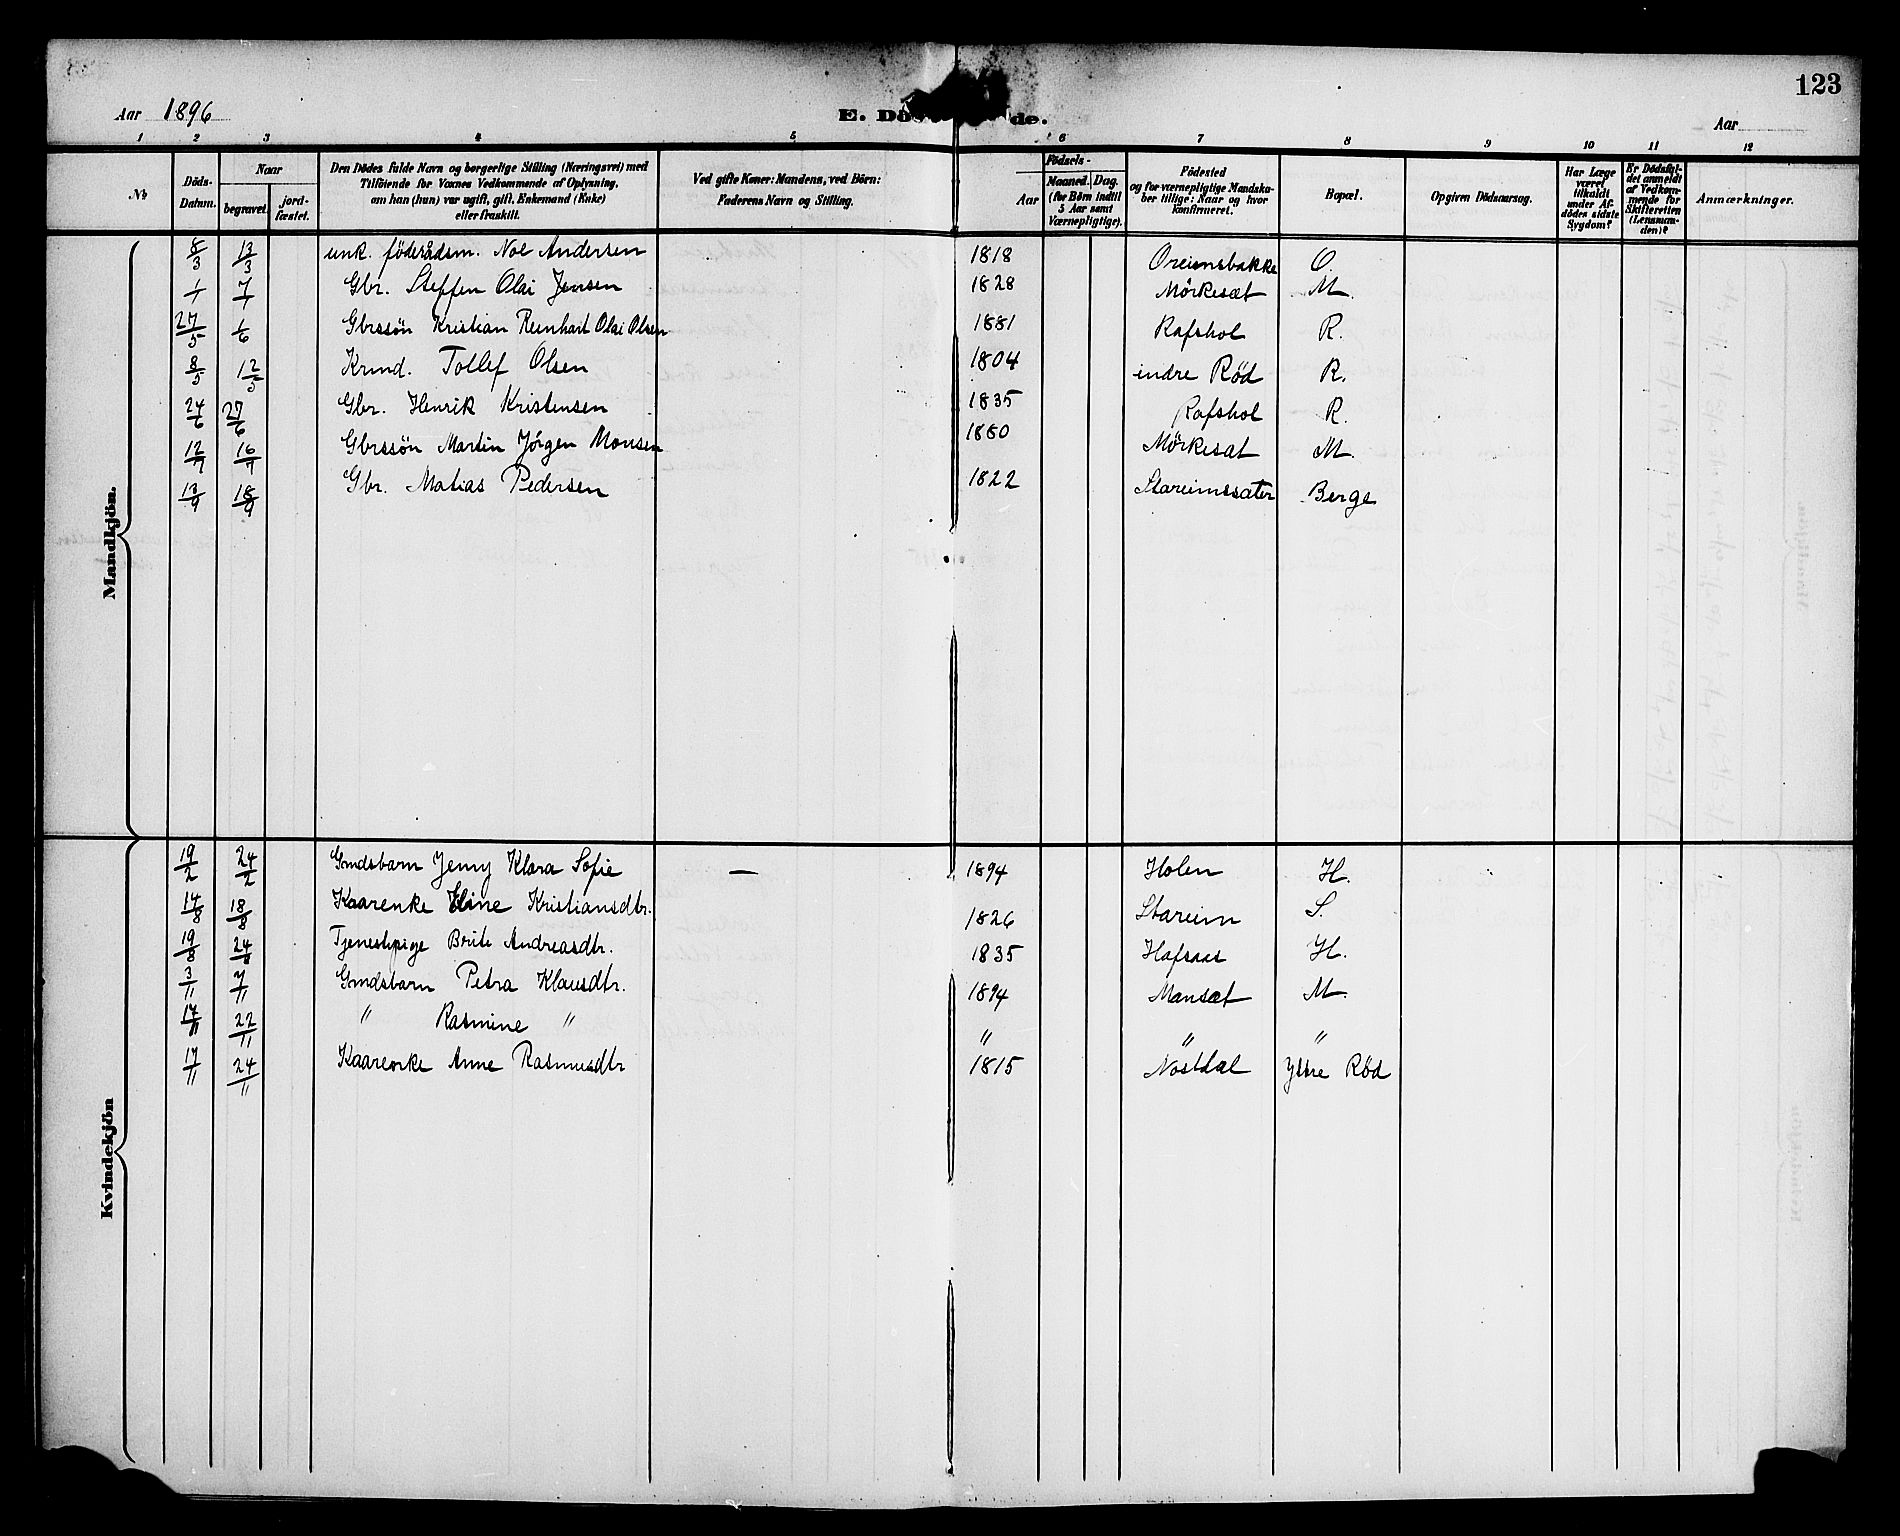 123
Aar 1896 E. Dö de. Aar
1 2 3 4 5 6 7 8 9 10 11 12
№ Döds-Datum. Naar begravet. jord-fæstet. Den Dödes fulde Navn og borgerlige Stilling (Næringsvei) med Tilföiende for Voxnes Vedkommende af Oplysning, om han (hun) var ugift, gift, Enkemand (Enke) eller fraskilt. Ved gifte Koner: Mandens, ved Börn: Faderens Navn og Stilling. Födsels- Aar Maaned. Dag. (for Börn indtil 5 Aar samt Værnepligtige). Födested og for værnepligtige Mandska-ber tillige: Naar og hvor konfirmeret. Bopæl. Opgiven Dödsaarsag. Har Læge været tilkaldt under Af-dödes sidste Sygdom? Er Dödsfal-det anmeldt af Vedkom-mende for Skifteretten (Lensman-den)? Anmærkninger.
Mandkjön.
8/3 13/3 enk. föderådsm. Noe Andersen 1818 Oreimsbakke O.
1/1 7/1 Gbr. Steffen Olai Jensen 1828 Mörkesæt M.
27/5 1/6 Gbrssön Kristian Reinhart Olai Olsen 1881 Rafshol R.
8/5 12/5 Krmd. Tollef Olsen 1804 indre Röd R.
24/6 27/6 Gbr. Henrik Kristensen 1835 Rafshol R.
12/7 16/7 Gbrssön Martin Jörgen Monsen 1880 Mörkesæt M.
13/9 18/9 Gbr. Matias Pedersen 1822 Stareimssæter Berge
Kvindekjön
19/2 24/2 Gmdsbarn Jenny Klara Sofie — 1894 Holen H.
14/8 18/8 Kaarenke Eline Kristiansdtr. 1826 Stareim S.
19/8 24/8 Tjenestpige Brite Andreasdtr. 1835 Hafsaas H.
3/11 7/11 Gmdsbarn Petra Klausdtr. 1894 Mansæt M.
17/11 22/11 " Rasmine " " " "
17/11 24/11 Kaarenke Anne Rasmusdtr 1815 Nostdal Ytre Röd